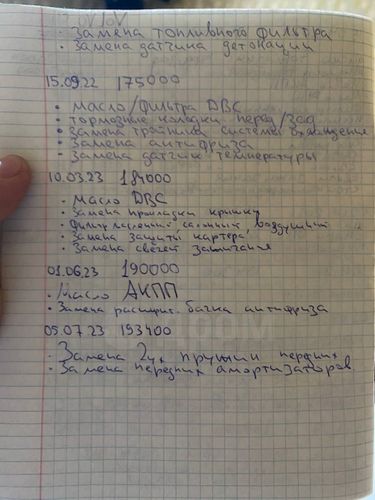 • Замена топливного фильтра
• Замена датчика детонации
15.09.22 175000
• Масло/Фильтра ДВС
• Тормозные колодки перед/зад
• Замена тройника системы охлаждение
• Замена антифриза
• Замена датчик температуры
10.03.23 184000
• Масло ДВС
• Замена прокладки крышки
• Фильтр масленный, салонный, воздушный
• Замена защиты картера
• Замена свечей зажигания
01.06.23 190000
• Масло АКПП
• Замена расширит. бачка антифриза
05.07.23 193400
• Замена 2ух пружин передних
• Замена передних амортизаторов